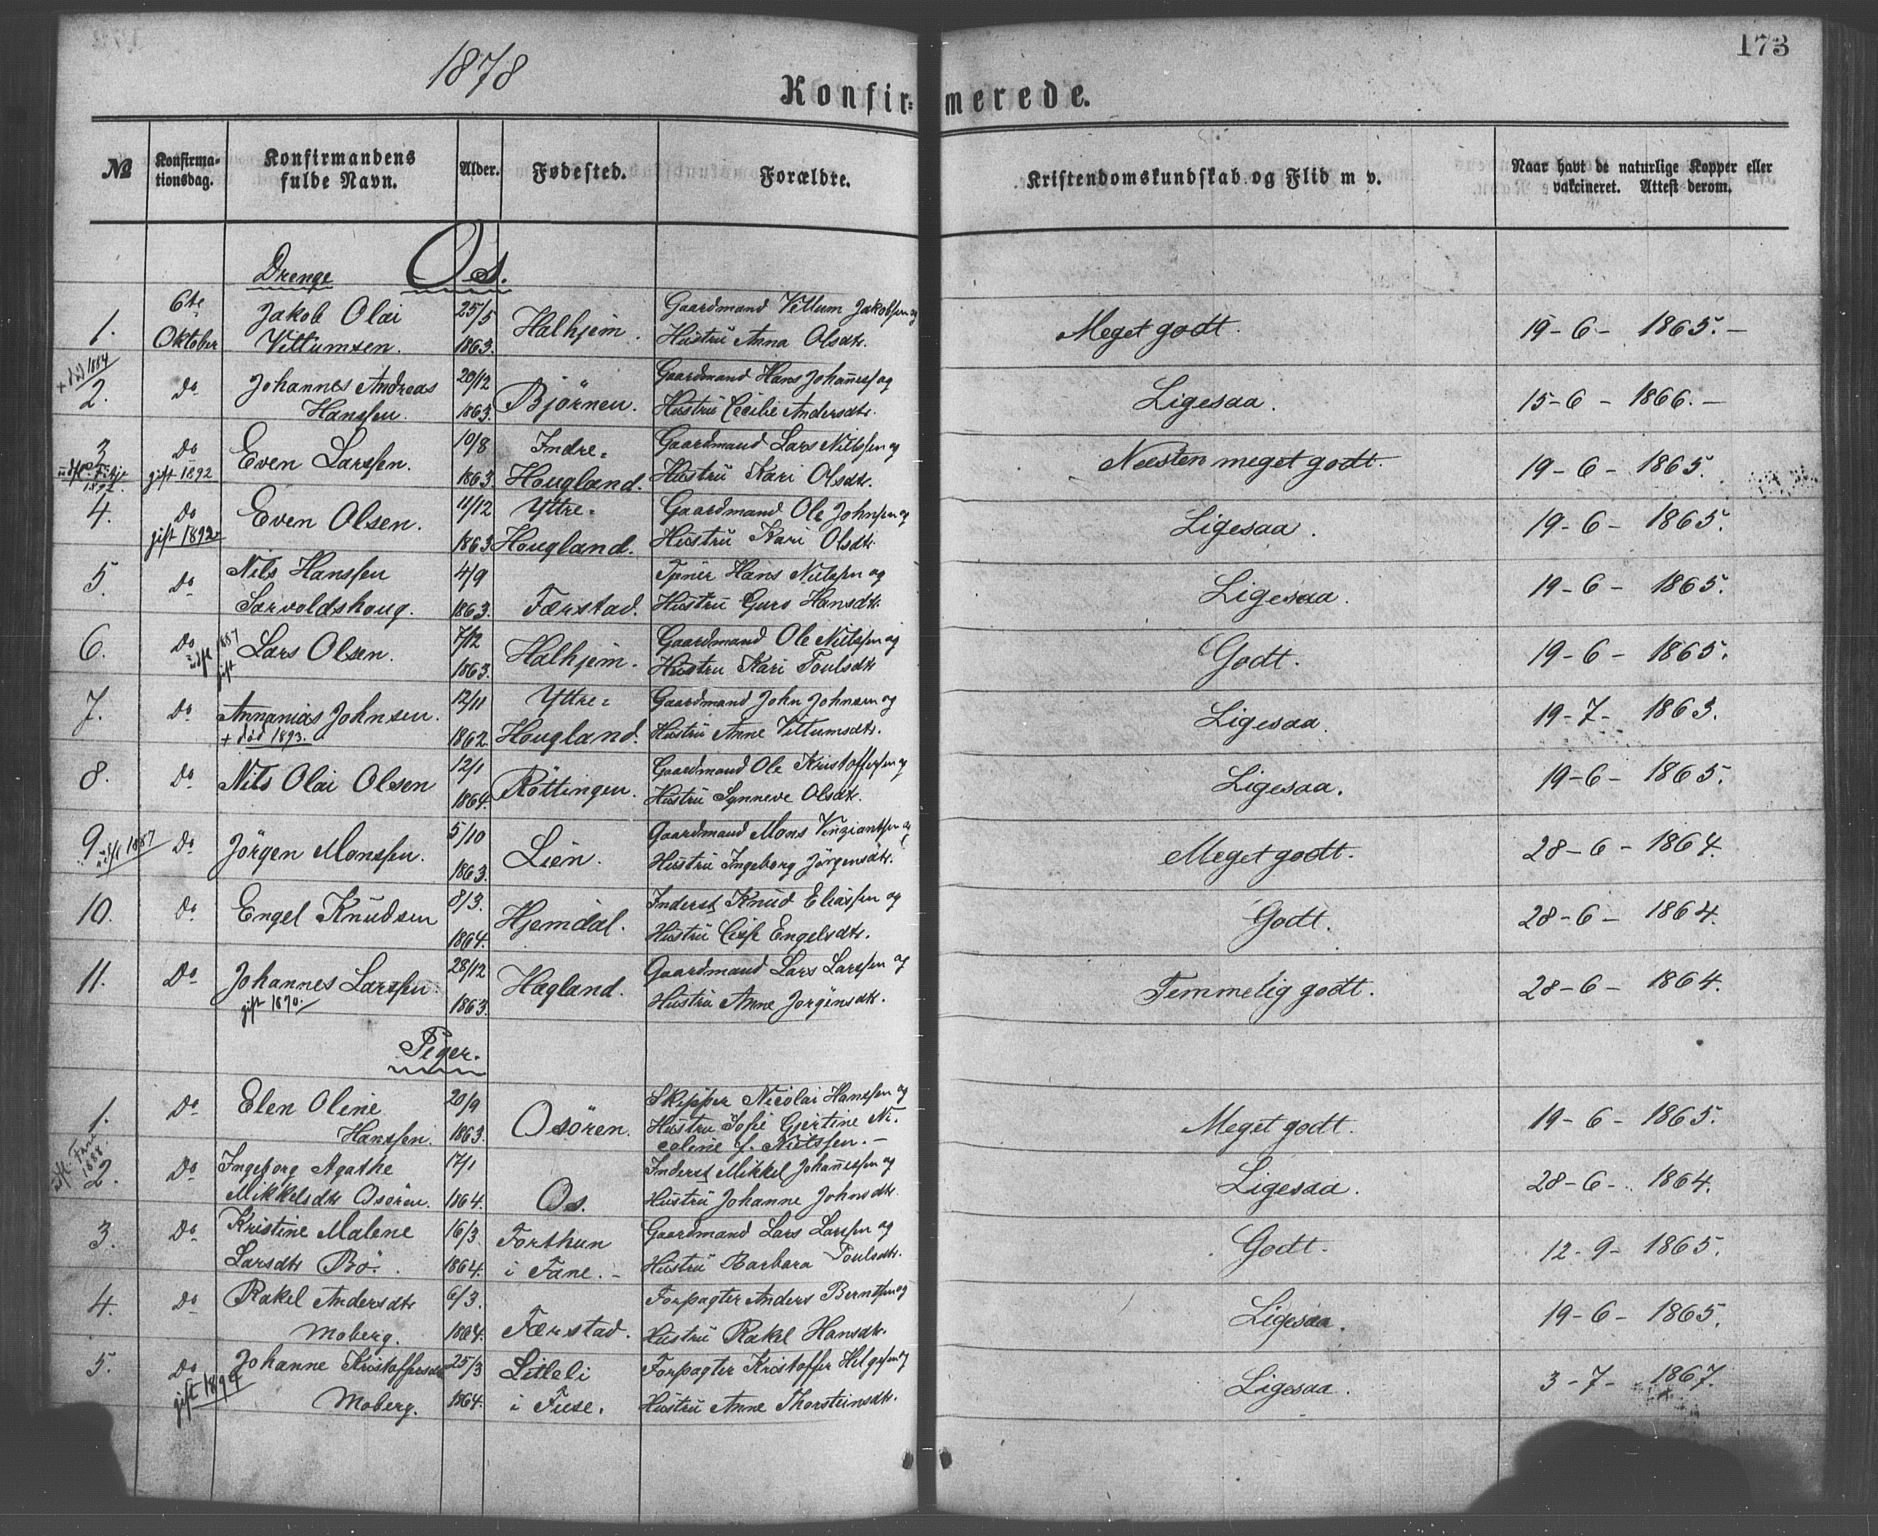 1878
173
Konfir=merede.
No
Konfirma-
tionsdag.
Konfirmandens
fulde Navn.
Alder.
Fødested.
Forældre.
Kristendomskundskab og Flid m v.
Naar havt de naturlige Kopper eller
vakcineret. Attest derom.
Drenge Os.
1. 6te Oktober Jakob Olai Vittumsen. 25/5 1863. Halhjem. Gaardmand Vittum Jakobsen og Hustru Anna Olsdtr. Meget godt. 19-6- 1865.-
+ død 1884
2. Do Johannes Andreas Hanssen. 20/12 1863. Björnen. Gaardmand Hans Johannesf og Hustru Cecilie Andersdtr. Ligesaa. 15-6- 1866.-
3 Do gift 1892 Even Larssen. 10/8 1863. Indre= Hougland. Gaardmand Lars Nilssen og Hustru Kari Olsdtr. Næsten meget godt. 19-6- 1865.
1892.
4. Do gift 1892 Even Olsen. 11/12 1863 Yttre= Hougland. Gaardmand Ole Johnsen og Hustru Kari Olsdtr. Ligesaa. 19-6- 1865.
5. Do Nils Hanssen Sørvoldshoug. 4/9 1863. Færstad. Hans Nielssen og Hustru Guro Hansdtr. Ligesaa. 19-6- 1865.
6. Do udfl 1887 gift Lars Olsen. 7/12 1863. Halhjem. Gaardmand Ole Nielssen og Hustru Kari Poulsdtr Godt. 19-6- 1865.
7. Do Annanias Johnsen. + död 1893. 12/11 1862. Yttre= Hougland. Gaardmand John Johnsen og Hustru Anne Vittumsdtr. Ligesaa. 19-7- 1863.
8. Do Nils Olai Olsen 12/1 1864. Röttingen. Gaardmand Ole Kristoffersen og Hustru Synneve Olsdtr. Ligesaa. 19-6- 1865.
9 udfl 1887 Do Jörgen Monssen. 5/10 1863. Lien. Gaardmand Mons Vinziantsen og Hustru Ingeborg Jörgensdtr. Meget godt. 28-6- 1864.
10. Do Engel Knudsen 8/3. 1864. Hjemdal. Inderst Knud Eliassen og Hustru Engelsdtr. Godt. 28-6- 1864.
11. Do Johannes Larssen gift 1870. 28/12 1863. Hagland. Gaardmand Lars Larssen og Hustru Anne Jorgensdtr. Temmelig godt. 28-6- 1864.
Piger.
1. Do Elen Oline Hanssen. 20/9 1863. Osören. Skipper Nicolai Hanssen og Hustru Sofie Gjertine Ni-coline f. Nielssen.- Meget godt. 19-6- 1865.
udfl Fane 1888
2. Do Ingeborg Agathe Mikkelsdtr Osören. 17/1 1864. Os. Inderst Mikkel Johannessen og Hustru Johanne Johnsdtr. Ligesaa. 28-6- 1864.
3. Do Kristine Malene Larsdtr Bö. 16/3 1864. Forthun i Fane.- Gaardmand Lars Larssen og Hustru Barbara Poulsdtr. Godt. 12-9- 1865.
4. Do Rakel Andersdtr Moberg. 6/3. 1864. Færstad. Forpagter Anders Berntsen og Hustru Rakel Hansdtr. Ligesaa. 19-6- 1865.
5. Do Johanne Kristoffersdtr Moberg. 25/3 1864. Litleli i Fuse. Forpagter Kristoffer Helgesen og Hustru Anne Thorsteinsdtr. Ligesaa. 3-7- 1867.